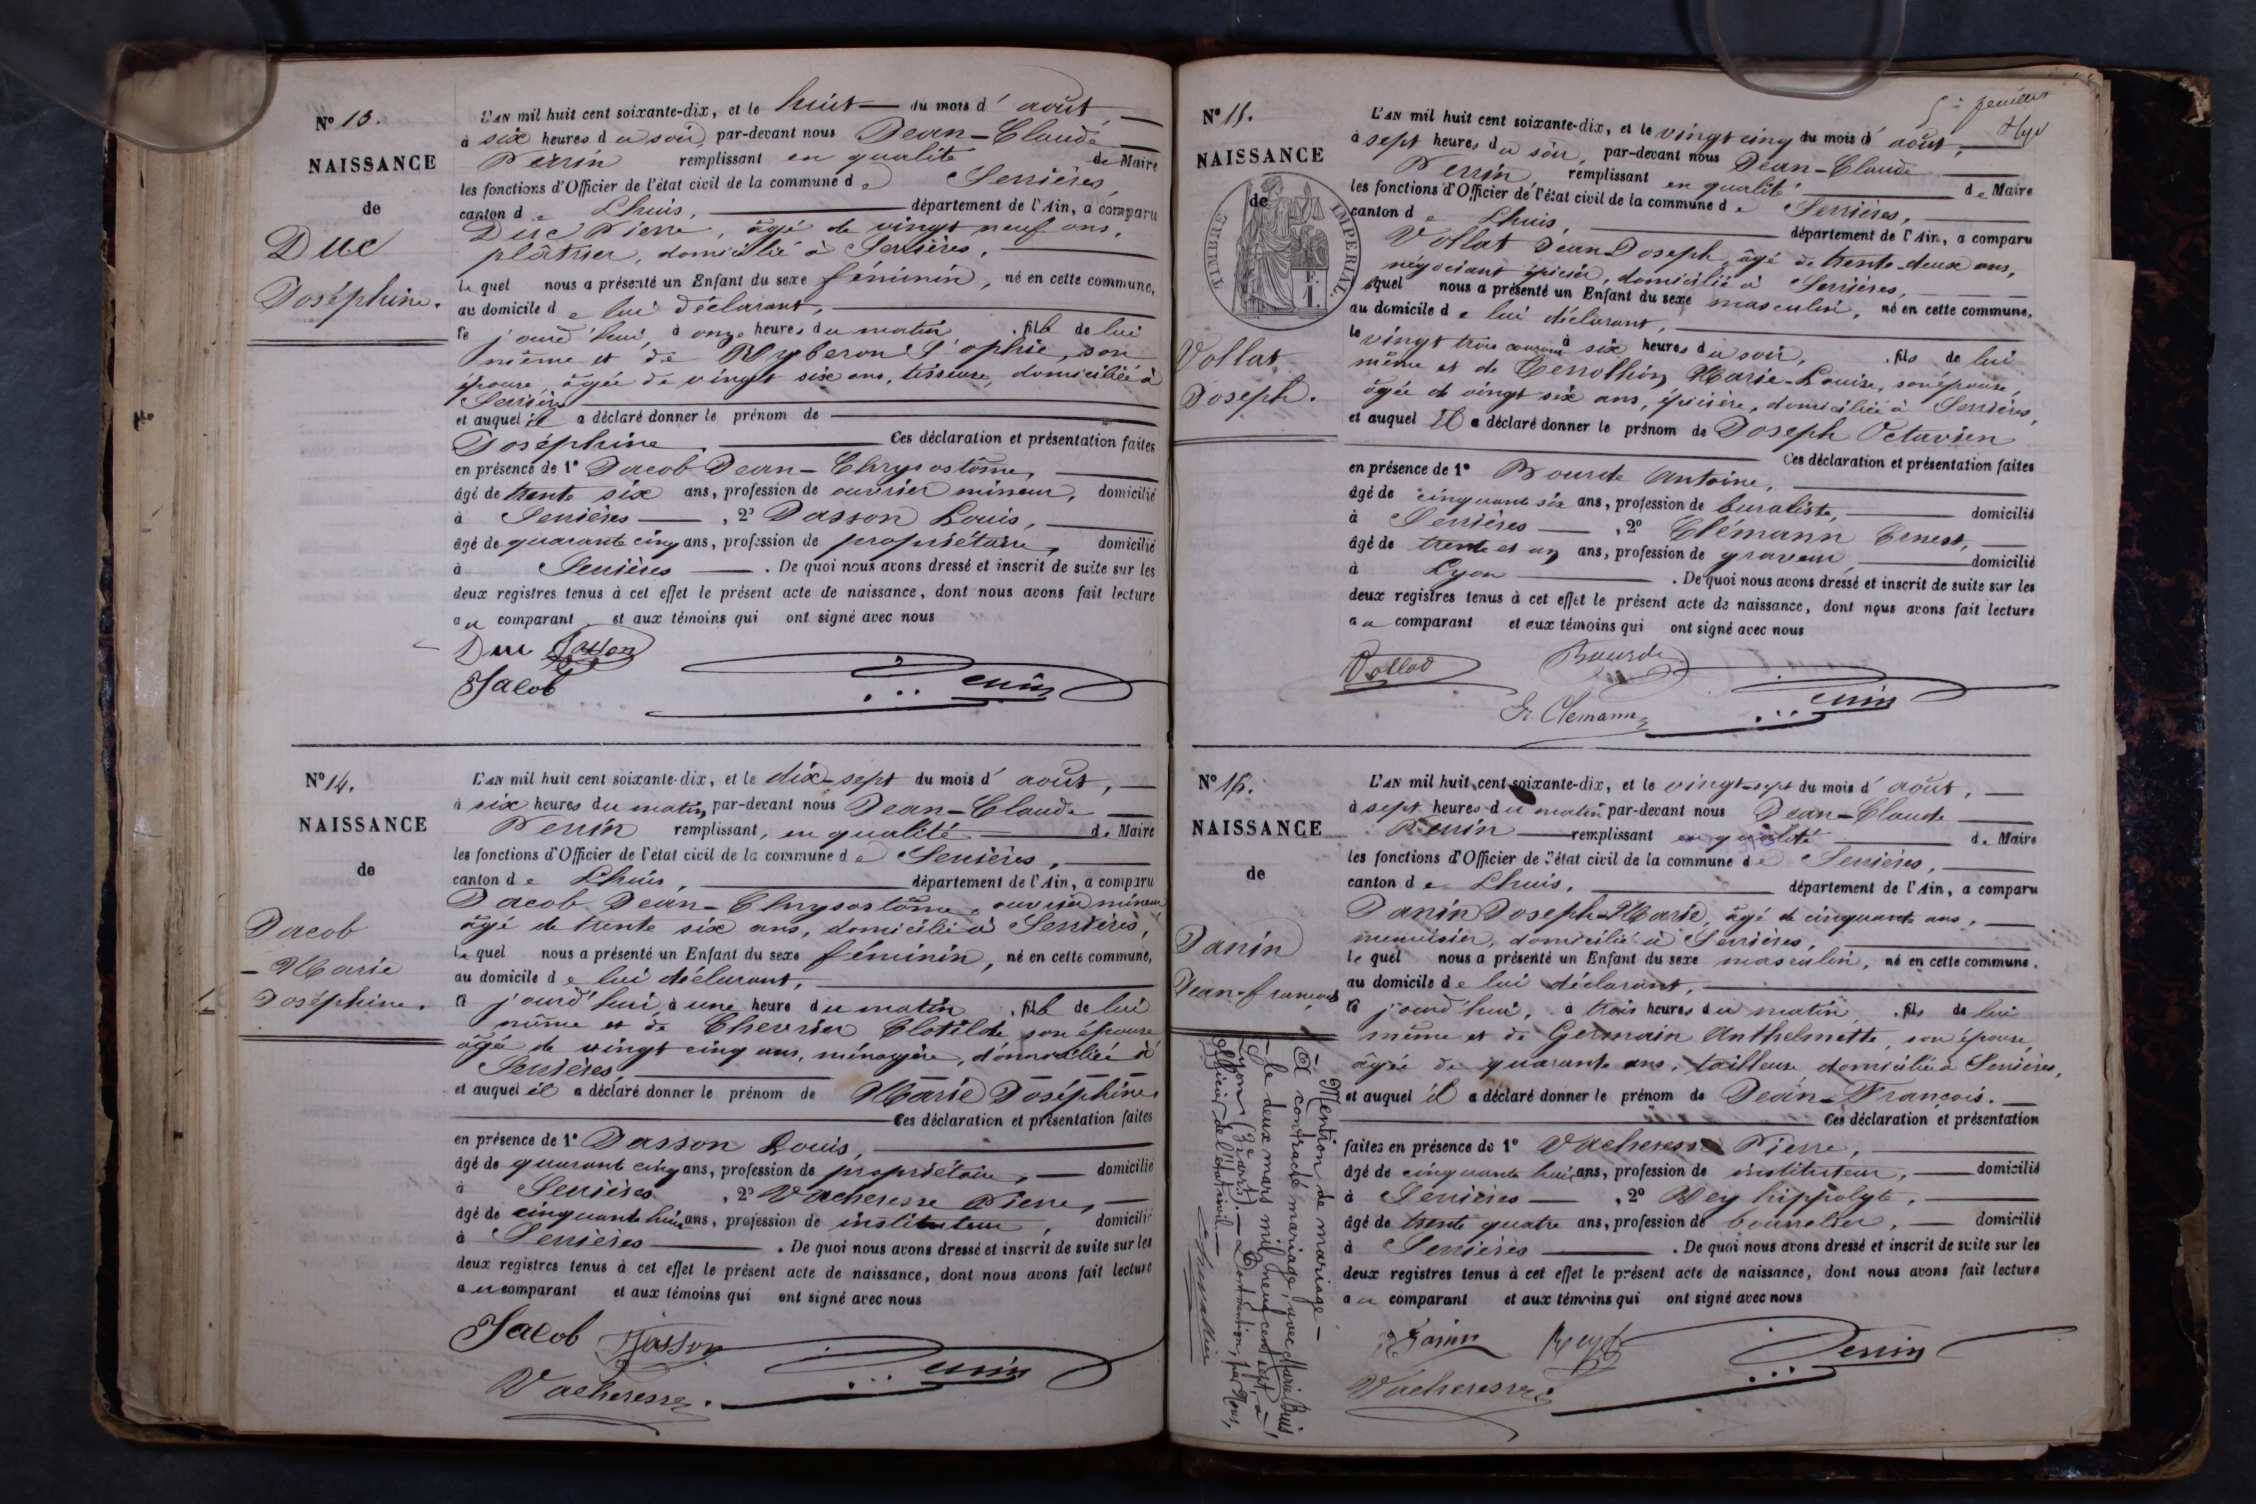 N° 13.
NAISSANCE
de
Duc
Joséphine.
L'AN mil huit cent soixante-dix, et le huit du mois d'août,
à six heures du soir, par-devant nous Jean-Claude
Perrin remplissant en qualité de Maire
les fonctions d'Officier de l'état civil de la commune de Serrières,
canton de Lhuis, département de l'Ain, a comparu
Duc Pierre, âgé de vingt neuf ans,
plâtrier, domicilié à Serrières,
lequel nous a présenté un Enfant du sexe féminin, né en cette commune,
au domicile de lui déclarant,
ce jourd'hui, à onze heures du matin, fille de lui
même et de Sophie, son
épouse, âgée de vingt six ans, tisseuse, domiciliée à
Serrières
et auquel il a déclaré donner le prénom de
Joséphine Ces déclaration et présentation faites
en présence de 1° Jacob Jean-Chrysostôme,
âgé de trente six ans, profession de ouvrier mineur, domicilié
à Serrières, 2° Jasson Louis,
âgé de quarante cinq ans, profession de propriétaire, domicilié
à Serrières. De quoi nous avons dressé et inscrit de suite sur les
deux registres tenus à cet effet le présent acte de naissance, dont nous avons fait lecture
au comparant et aux témoins qui ont signé avec nous
Duc Jasson
Jacob Perrin
N° 14.
NAISSANCE
de
Jacob
Marie
Joséphine.
L'AN mil huit cent soixante-dix, et le dix-sept du mois d'août,
à six heures du matin, par-devant nous Jean-Claude
Perrin remplissant, en qualité de Maire
les fonctions d'Officier de l'état civil de la commune de Serrières,
canton de Lhuis, département de l'Ain, a comparu
Jacob Jean-Chrysostôme, ouvrier mineur
âgé de trente six ans, domicilié à Serrières,
lequel nous a présenté un Enfant du sexe féminin, né en cette commune,
au domicile de lui déclarant,
ce jourd'hui, à une heure du matin, fille de lui
même et de Chevrier Clotilde son épouse
âgée de vingt cinq ans, ménagère, domiciliée à
Serrières,
et auquel il a déclaré donner le prénom de Marie Joséphine
Ces déclaration et présentation faites
en présence de 1° Jasson Louis,
âgé de quarante cinq ans, profession de propriétaire, domicilié
à Serrières, 2° Vacheresse Pierre,
âgé de cinquante huit ans, profession de instituteur, domicilié
à Serrières. De quoi nous avons dressé et inscrit de suite sur les
deux registres tenus à cet effet le présent acte de naissance, dont nous avons fait lecture
au comparant et aux témoins qui ont signé avec nous
Jacob Jasson
Vacheresse. Perrin
5e feuillet
N° 15.
NAISSANCE
de
TIMBRE IMPERIAL.
Vollat
Joseph.
L'AN mil huit cent soixante-dix, et le vingt cinq du mois d'août,
à sept heures du soir, par-devant nous Jean-Claude
Perrin remplissant en qualité de Maire
les fonctions d'Officier de l'état civil de la commune de Serrières,
canton de Lhuis, département de l'Ain, a comparu
Vollat Jean-Joseph, âgé de trente-deux ans,
négociant épicier, domicilié à Serrières,
lequel nous a présenté un Enfant du sexe masculin, né en cette commune,
au domicile de lui déclarant,
le vingt trois courant à six heures du soir, fils de lui
même et de Marie-Louise, son épouse,
âgée de vingt six ans, épicière, domiciliée à Serrières,
et auquel Il a déclaré donner le prénom de Joseph Octavien
Ces déclaration et présentation faites
en présence de 1° Bourde Antoine,
âgé de cinquante six ans, profession de buraliste, domicilié
à Serrières, 2° Clémann Ernest,
âgé de trente et un ans, profession de graveur, domicilié
à Lyon. De quoi nous avons dressé et inscrit de suite sur les
deux registres tenus à cet effet le présent acte de naissance, dont nous avons fait lecture
au comparant et aux témoins qui ont signé avec nous
Vollat Bourde
Clemann Perrin
N° 16.
NAISSANCE
de
Janin
Jean-françois
L'AN mil huit cent soixante-dix, et le vingt-sept du mois d'août,
à sept heures du matin par-devant nous Jean-Claude
Perrin remplissant en qualité de Maire
les fonctions d'Officier de l'état civil de la commune de Serrières,
canton de Lhuis, département de l'Ain, a comparu
Janin Joseph-Marie, âgé de cinquante ans,
menuisier, domicilié à Serrières,
lequel nous a présenté un Enfant du sexe masculin, né en cette commune,
au domicile de lui déclarant,
ce jourd'hui, à trois heures du matin, fils de lui
même et de Germain Anthelmette, son épouse,
âgée de quarante ans, tailleuse domiciliée à Serrières,
et auquel il a déclaré donner le prénom de Jean-François.
Ces déclaration et présentation
faites en présence de 1° Vacheresse Pierre,
âgé de cinquante huit ans, profession de instituteur, domicilié
à Serrières, 2° Rey hippolyte,
âgé de trente quatre ans, profession de bourrelier, domicilié
à Serrières. De quoi nous avons dressé et inscrit de suite sur les
deux registres tenus à cet effet le présent acte de naissance, dont nous avons fait lecture
au comparant et aux témoins qui ont signé avec nous
Janin Rey
Vacheresse. Perrin
Mention de mariage
A contracté mariage, avec Marie Buis,
le deux mars mil neuf cent sept, à
Lyon (3e arrt). Dont mention, par Nous,
officier de l'état civil